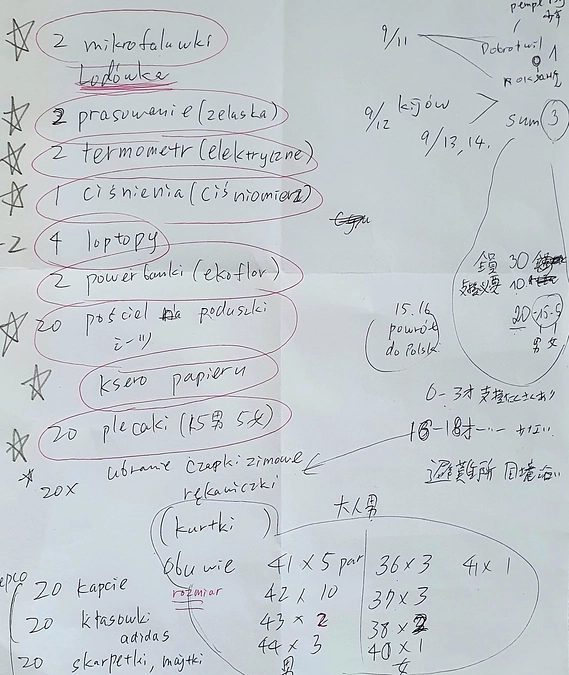 2 mikrofaluwki
Lodówka
2 prasowanie (żelaska)
2 termometr (elektryczne)
1 ciśnienia (ciśniomierz)
-2 4 loptopy
2 powerbanki (ekoflor)
20 pościel na poduszki
シーツ
ksero papieru
20 plecaki (15男 5女)
20x ubranie czapki zimowe
rękawiczki
(kurtki)
Obuwie
rozmiar
大人男
41 x 5 par
42 x 10
43 x 2
44 x 3
男
36 x 3
37 x 3
38 x 2
40 x 1
女
41 x 1
epco
20 kapcie
20 klasówki
adidas
20 skarpetki, majtki
9/11
Dobrotwil 1
9/12 kijów
9/13, 14.
sum 3
全員 30
支援必要 10
20 - 15.5
男女
15.16
powrót
do Polski
0-3才
16-18才
避難所 国境沿い